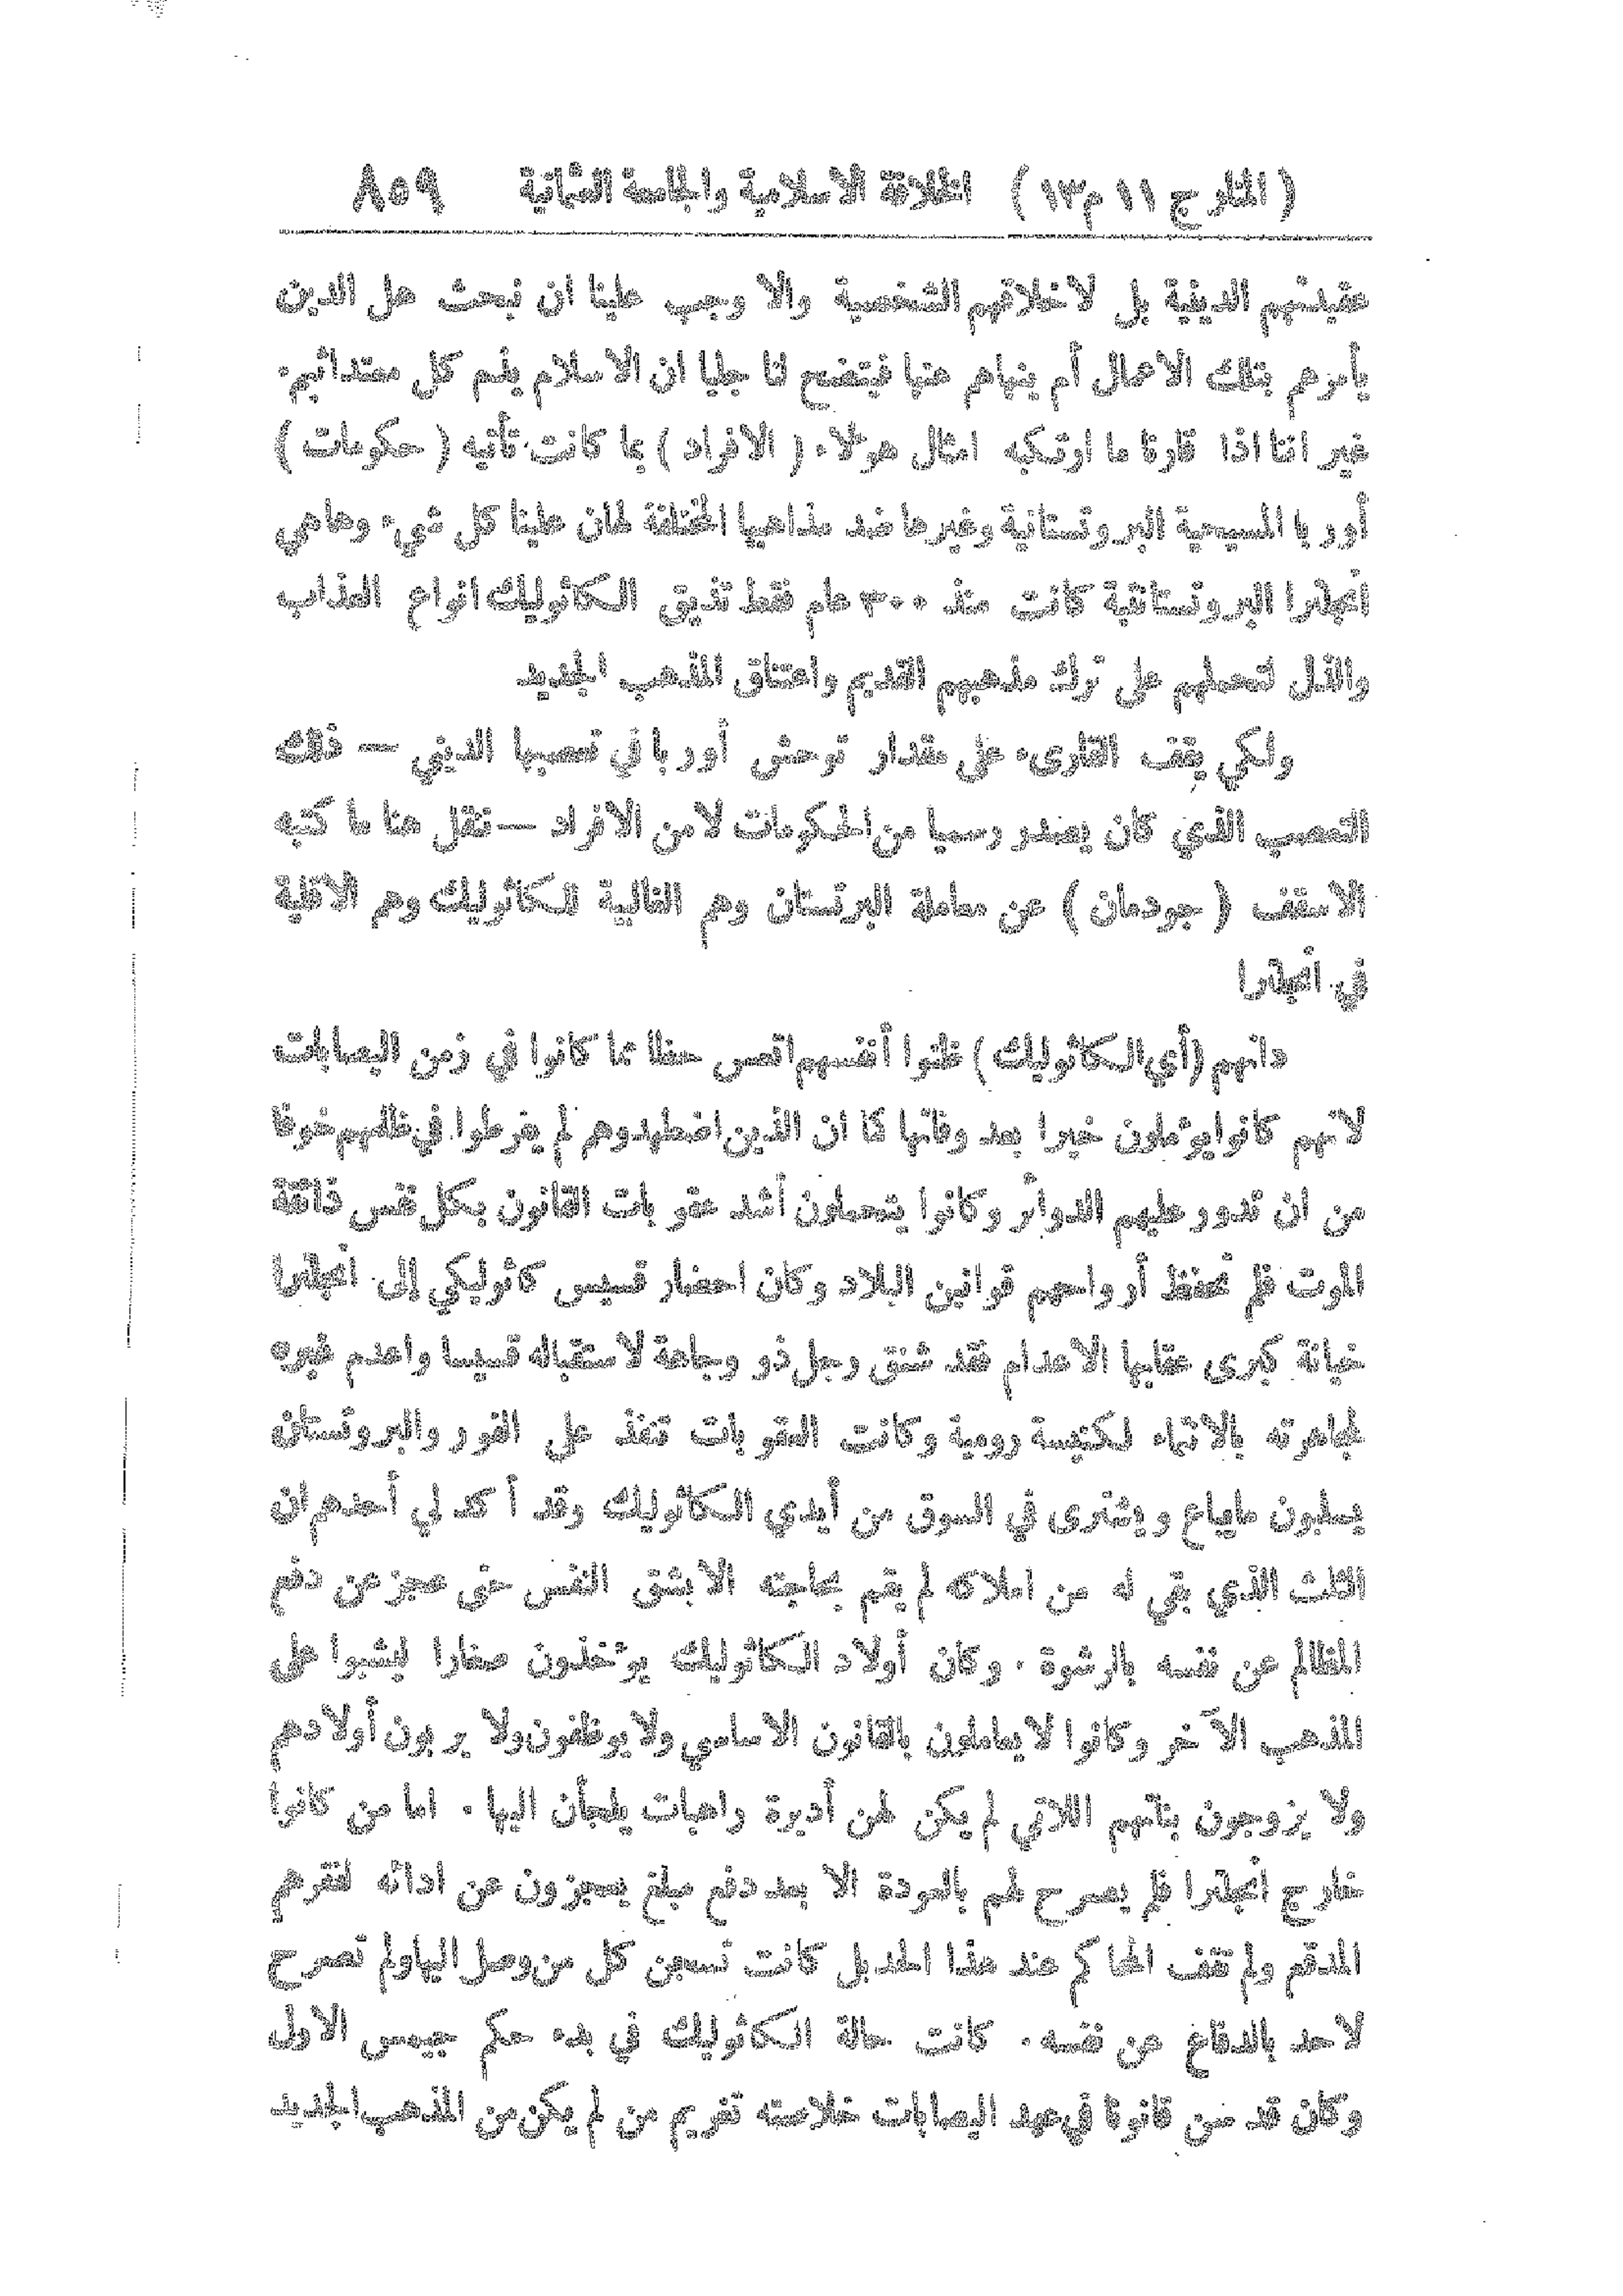 ( المنار ج ١١ م ١٣ ) الخلافة الاسلامية والجامعة العثمانية ٨٥٩
عقيدتهم الدينية بل لاخلاقهم الشخصية والا وجب علينا ان نبحث هل الدين
يأمرهم بتلك الاعمال أم ينهاهم عنها فيتضح لنا جليا ان الاسلام يذم كل معتد اثيم.
غير اننا اذا قارنا ما ارتكبه امثال هؤلاء ( الافراد ) بما كانت تأتيه ( حكومات )
أوربا المسيحية البروتستانية وغيرها ضد مذاهبها المختلفة لهان علينا كل شيء وهاهي
انجلترا البروتستانتية كانت منذ ٣٠٠ عام فقط تذيق الكاثوليك انواع العذاب
والذل لتحملهم على ترك مذهبهم القديم واعتناق المذهب الجديد
ولكي يقف القارىء على مقدار توحش أوربا في تعصبها الديني — ذلك
التعصب الذي كان يصدر رسميا من الحكومات لا من الافراد — ننقل هنا ما كتبه
الاسقف ( جودمان ) عن معاملة البرتستان وهم الغالبية للكاثوليك وهم الاقلية
في انجلترا
«انهم (أي الكاثوليك) ظنوا أنفسهم اتعس حظا مما كانوا في زمن اليصابات
لانهم كانوا يؤملون خيرا بعد وفاتها كما ان الذين اضطهدوهم لم يفرطوا في ظلمهم خوفا
من ان تدور عليهم الدوائر وكانوا يتحملون أشد عقوبات القانون بكل نفس ذائقة
الموت فلم تحفظ أرواحهم قوانين البلاد وكان احضار قسيس كاثوليكي إلى انجلترا
خيانة كبرى عقابها الاعدام فقد شنق رجل ذو وجاهة لاستقباله قسيسا واعدم غيره
لمجاهرته بالانتماء لكنيسة رومية وكانت العقوبات تنفذ على الفور والبروتستان
يسلبون مايباع ويشترى في السوق من أيدي الكاثوليك وقد أكد لي أحدهم ان
الثلث الذي بقي له من املاكه لم يقم بحاجته الا بشق النفس حتى عجز عن دفع
المظالم عن نفسه بالرشوة . وكان أولاد الكاثوليك يؤخذون صغارا ليشبوا على
المذهب الآخر وكانوا لايعاملون بالقانون الاساسي ولا يوظفون ولا يربون أولادهم
ولا يزوجون بناتهم اللاتي لم يكن لهن أديرة راهبات يلجأن اليها . اما من كانوا
خارج انجلترا فلم يصرح لهم بالعودة الا بعد دفع مبلغ يعجزون عن ادائه لفقرهم
المدقع ولم تقف المحاكم عند هذا الحد بل كانت تسجن كل من وصل اليها ولم تصرح
لاحد بالدفاع عن نفسه . كانت حالة الكاثوليك في بدء حكم جيمس الاول
وكان قد سن قانونا في عهد اليصابات خلاصته تغريم من لم يكن من المذهب الجديد